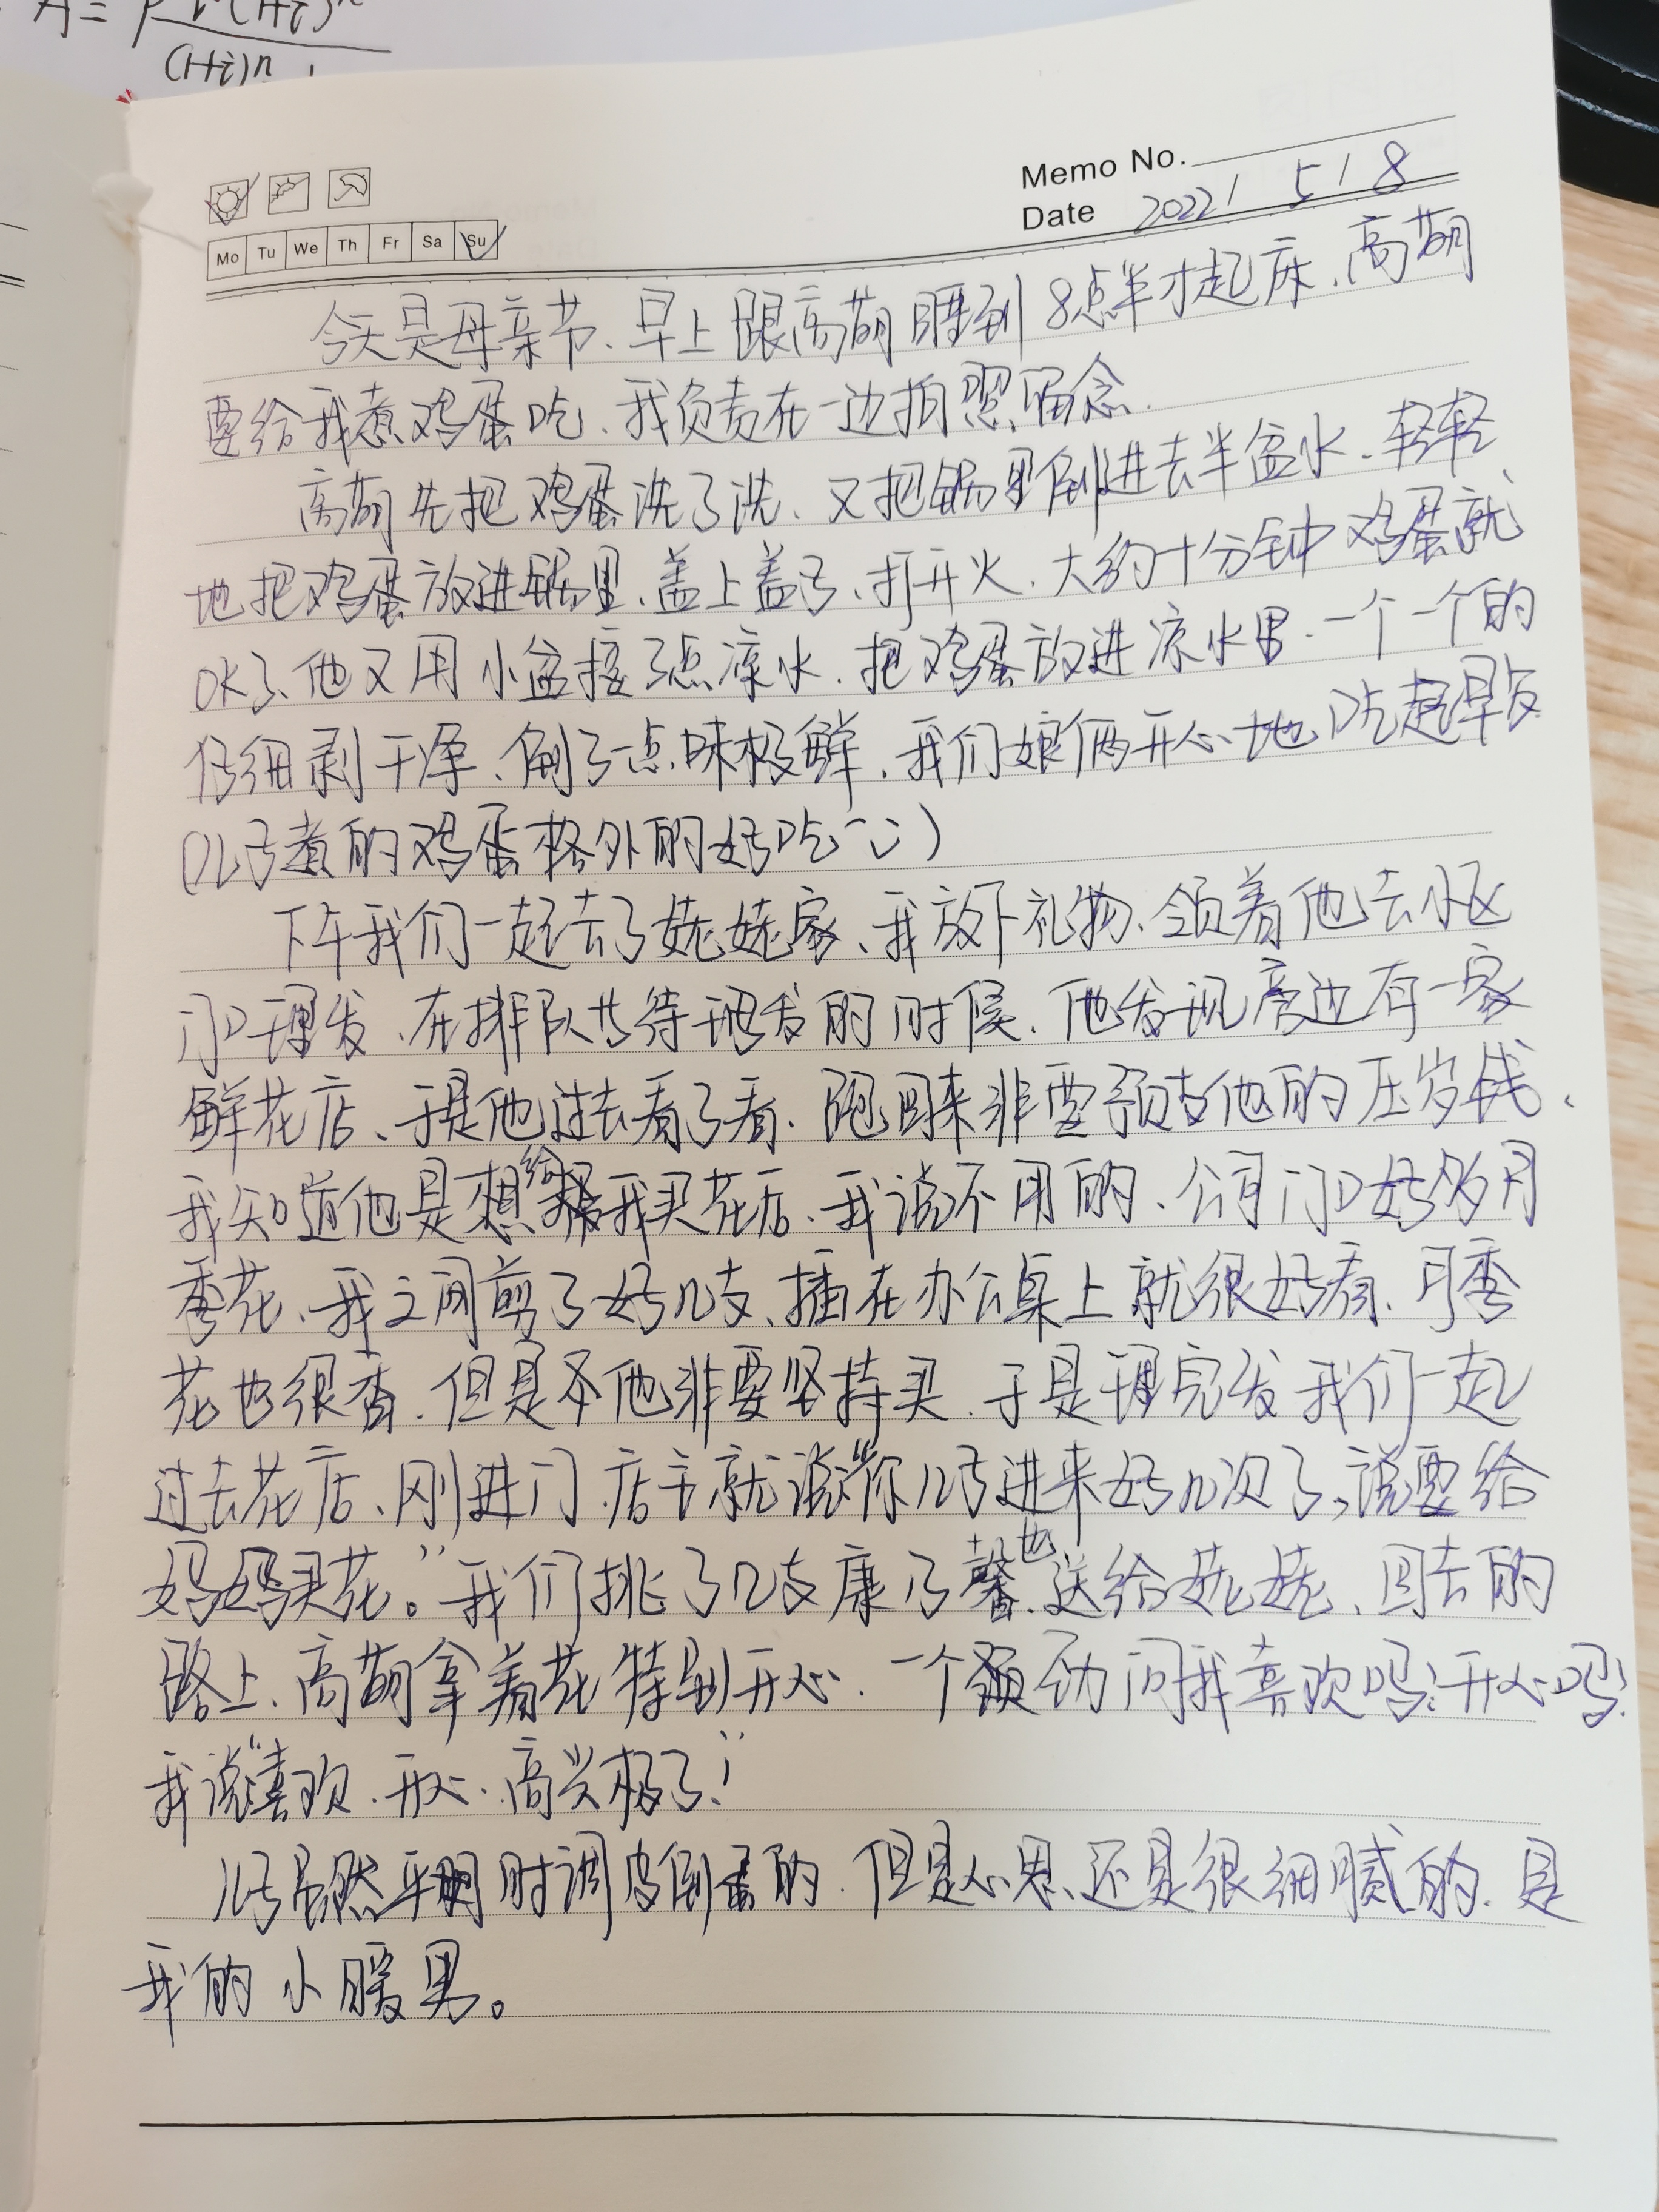 (1+i)ⁿ
Memo No.
Date 2022/ 5/ 8
Mo Tu We Th Fr Sa Su
今天是母亲节、早上跟高萌睡到8点半才起床、高萌
要给我煮鸡蛋吃、我负责在一边拍照留念.
高萌先把鸡蛋洗了洗、又把锅里倒进去半盆水、轻轻
地把鸡蛋放进锅里、盖上盖子、打开火、大约十分钟鸡蛋就
OK了、他又用小盆接了点凉水、把鸡蛋放进凉水里、一个一个的
仔细剥干净、倒了一点味极鲜、我们娘俩开心地吃起早饭
(儿子煮的鸡蛋格外的好吃)
下午我们一起去了姥姥家、我放下礼物、领着他去小区
门口理发、在排队等待理发的时候、他发现旁边有一家
鲜花店、于是他过去看了看、跑回来非要预支他的压岁钱、
我知道他是想给我买花店、我说不用的、公司门口好多月
季花、我之间剪了好几支、插在办公桌上就很好看、月季
花也很香、但是他非要坚持买、于是理完发我们一起
过去花店、刚进门、店主就说“你儿子进来好几次了,说要给
妈妈买花。”我们挑了几支康乃馨、也送给姥姥、回去的
路上、高萌拿着花特别开心、一个劲问我喜欢吗?开心吗?
我说“喜欢、开心、高兴极了!”
儿子虽然平时调皮倒蛋的、但是心思还是很细腻的、是
我的小暖男。